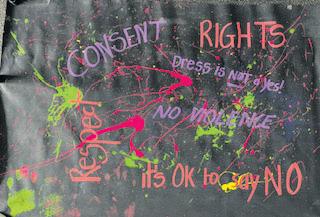 CONSENT
RIGHTS
Dress is Not a yes!
NO VIOLENCE
Respect
it's OK to say NO